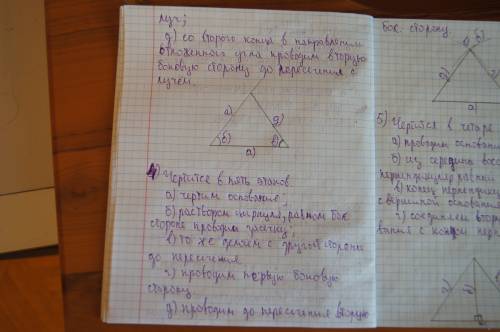 луч;
д) со второго конца в направлении
отложенного угла проводим вторую
боковую сторону до пересечения с
лучем.
а)
д)
б)
в)
а)
4) Чертится в пять этапов
а) чертим основание;
б) раствором циркуля, равном бок.
стороне проводим засечку;
в) то же делаем с другой стороны
до пересечения
г) проводим первую боковую
сторону
д) проводим до пересечения вторую
бок. сторону
б)
а)
5) Чертится в четыре
а) проводим основани
б) из середины восс
перпендикуляр равный
в) конец перпендику
с вершиной основания
г) соединяем второ
вания с концом перп